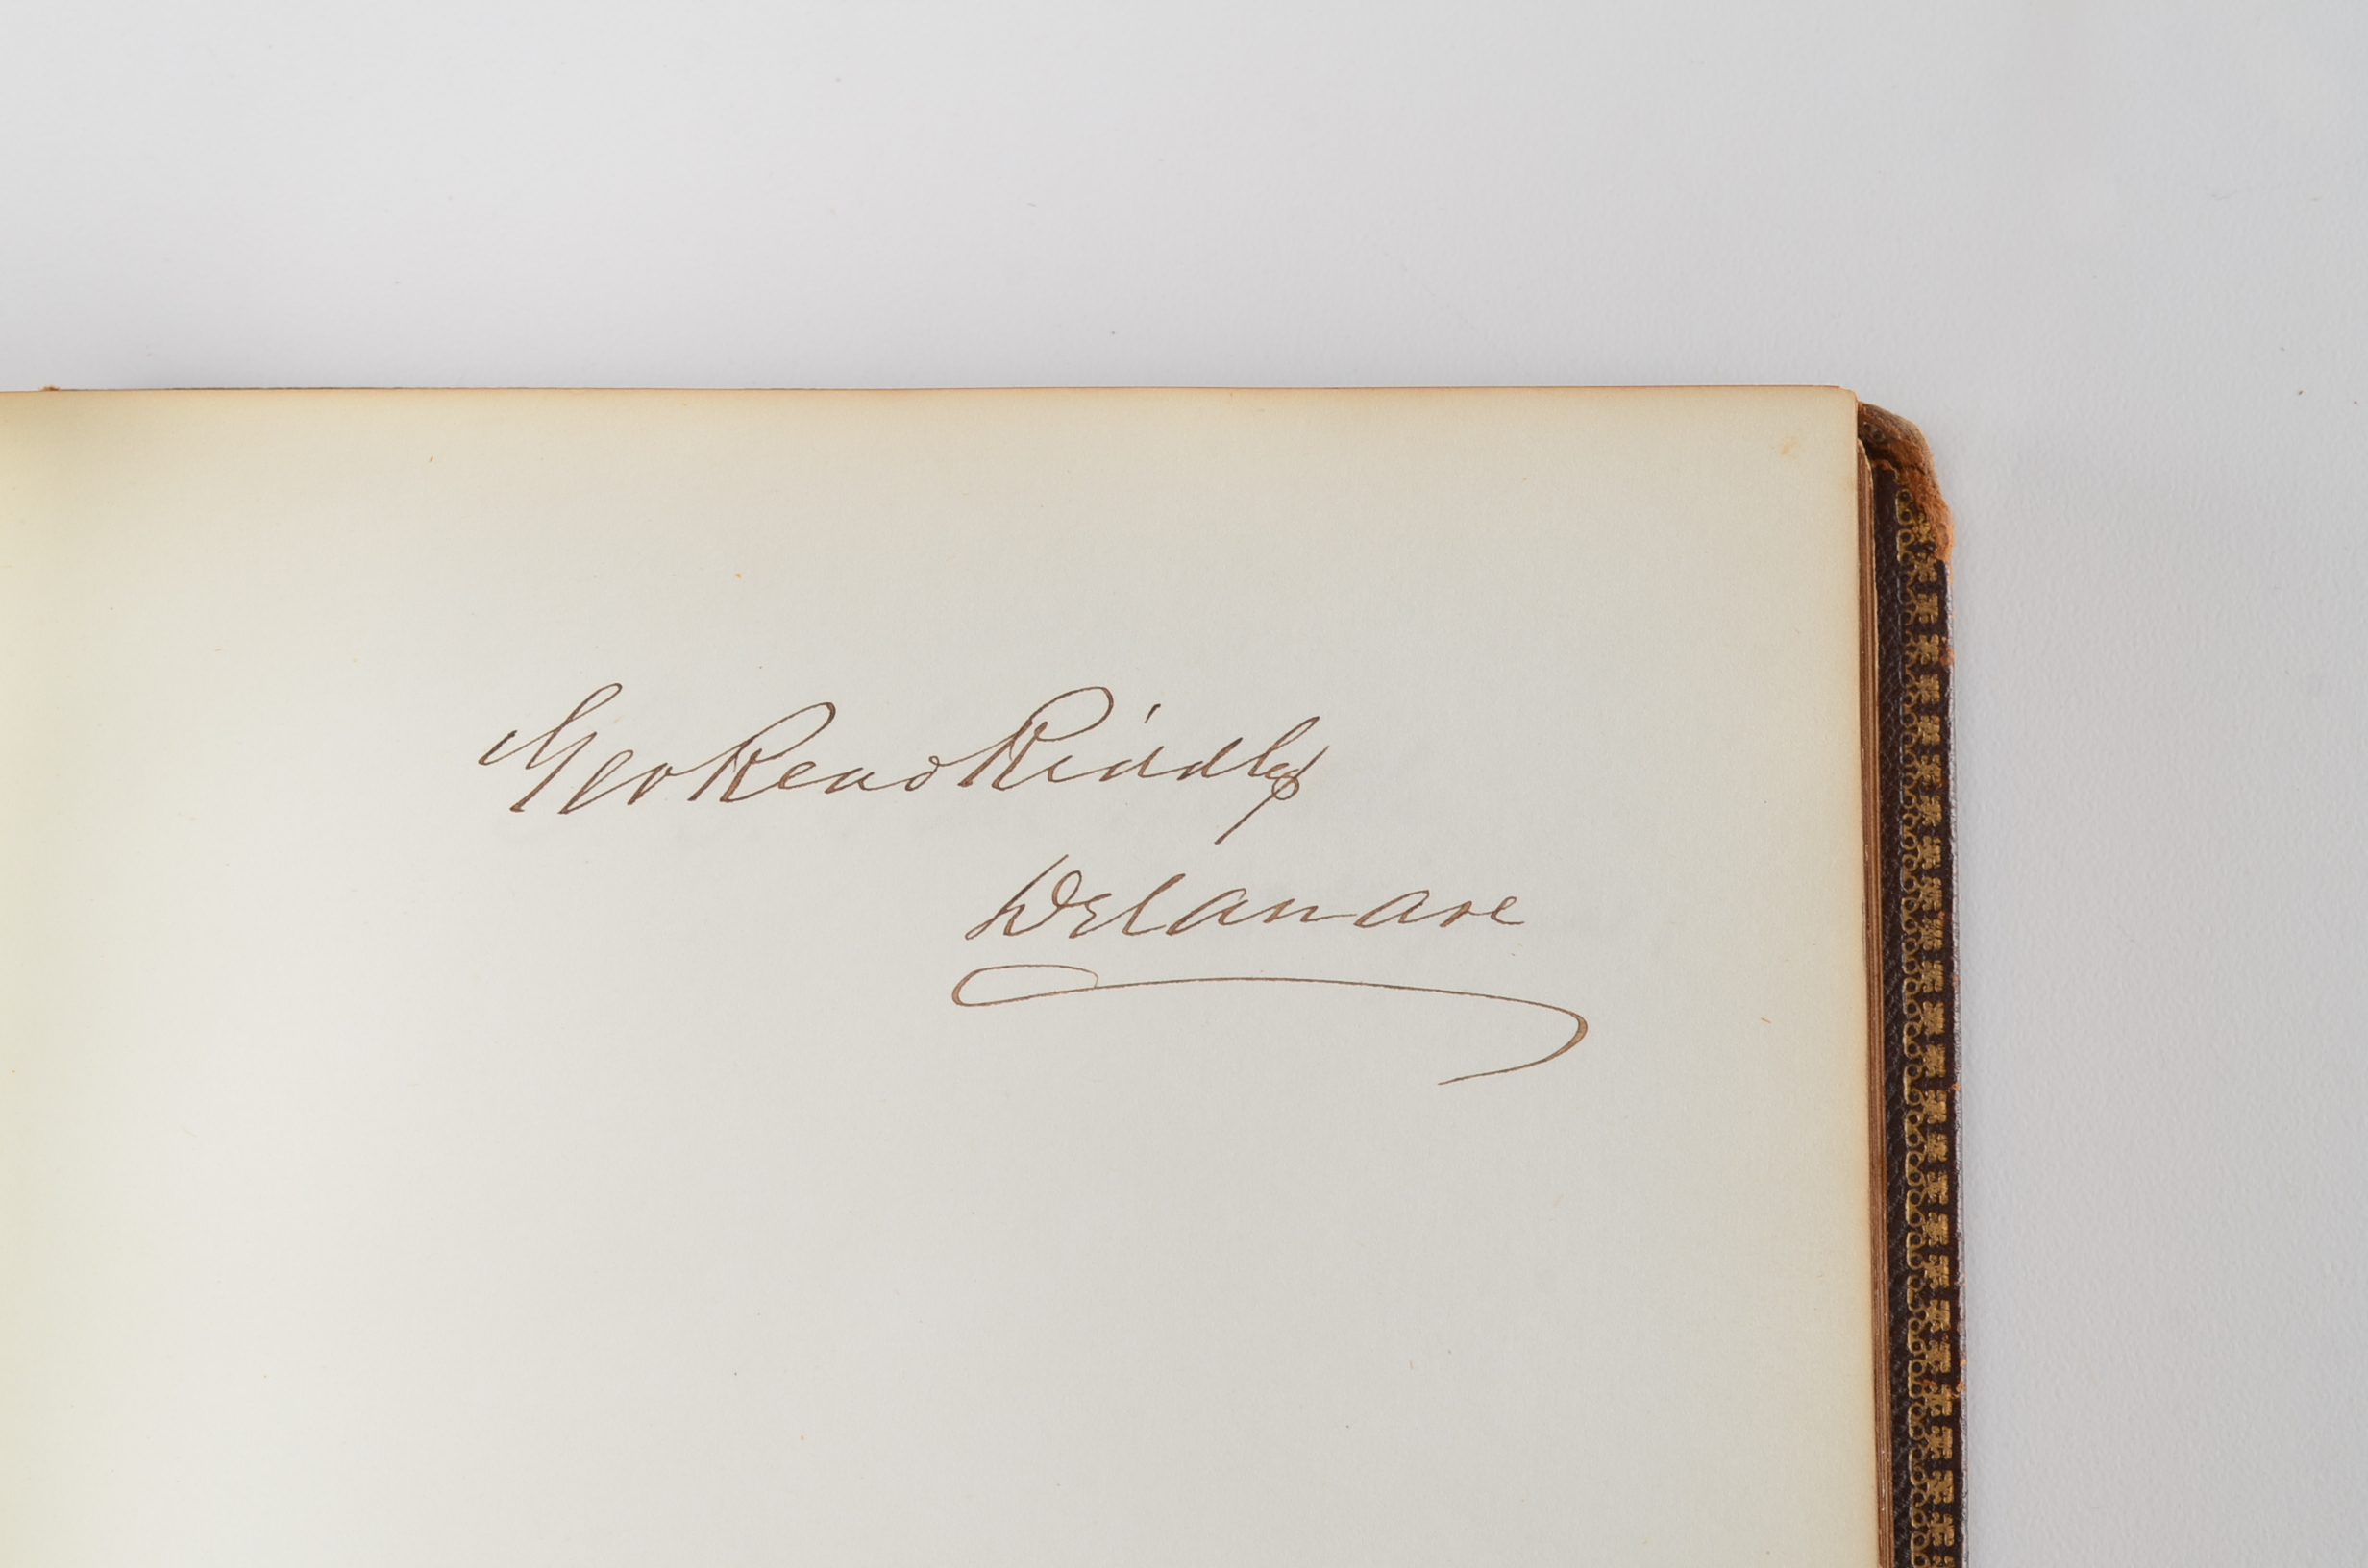 Geo Read Riddle
Delaware